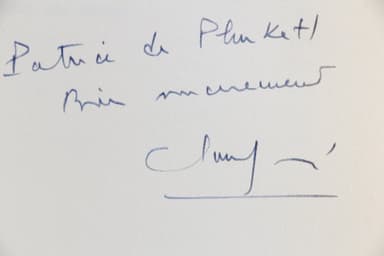 Patrice de Plunkett
Bien sincèrement